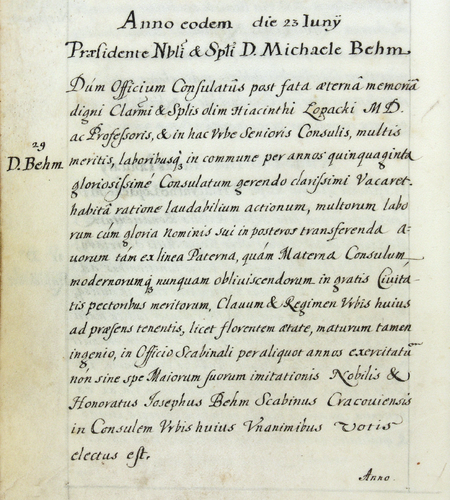 Anno eodem die 23 Iunÿ
Præsidente Nbli & Spli D. Michaele Behm
Dúm Officium Consulatûs post fata æternâ memoriâ
digni Clarmi & Splis olim Hiacinthi Łopacki M D.
ac Professoris, & in hac Vrbe Senioris Consulis, multis
29
D. Behm.
meritis, laboribusq; in commune per annos quinquaginta
gloriosissime Consulatum gerendo clarissimi Vacaret,
habitâ ratione laudabilium actionum, multorum labo
rum cúm gloria Nominis sui in posteros transferenda a-
uorum tám ex linea Paterna, quám Materna Consulum,
modernorumq; nunquam obliuiscendorum in gratis Ciuita-
tis pectoribus meritorum, Clauum & Regimen Vrbis huius
ad præsens tenentis, licet florentem ætate, maturum tamen
ingenio, in Officio Scabinali per aliquot annos exercitatū
nón sine spe Maiorum suorum imitationis Nobilis &
Honoratus Iosephus Behm Scabinus Cracouiensis
in Consulem Vrbis huius Vnanimibus Votis
electus est.
Anno